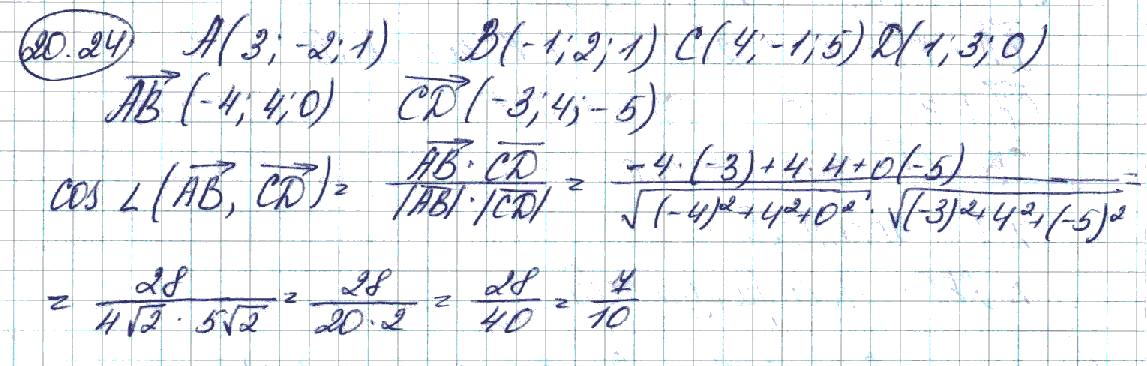 20.24 A(3; -2; 1) B(-1; 2; 1) C(4; -1; 5) D(1; 3; 0)
\overrightarrow{AB} (-4; 4; 0) \overrightarrow{CD} (-3; 4; -5)
cos ∠(\overrightarrow{AB}, \overrightarrow{CD}) = \frac{\overrightarrow{AB} · \overline{CD}}{|\overline{AB}| · |\overline{CD}|} = \frac{-4 · (-3) + 4 · 4 + 0(-5)}{\sqrt{(-4)² + 4² + 0²} · \sqrt{(-3)² + 4² + (-5)²}} =
= \frac{28}{4\sqrt{2} · 5\sqrt{2}} = \frac{28}{20 · 2} = \frac{28}{40} = \frac{7}{10}